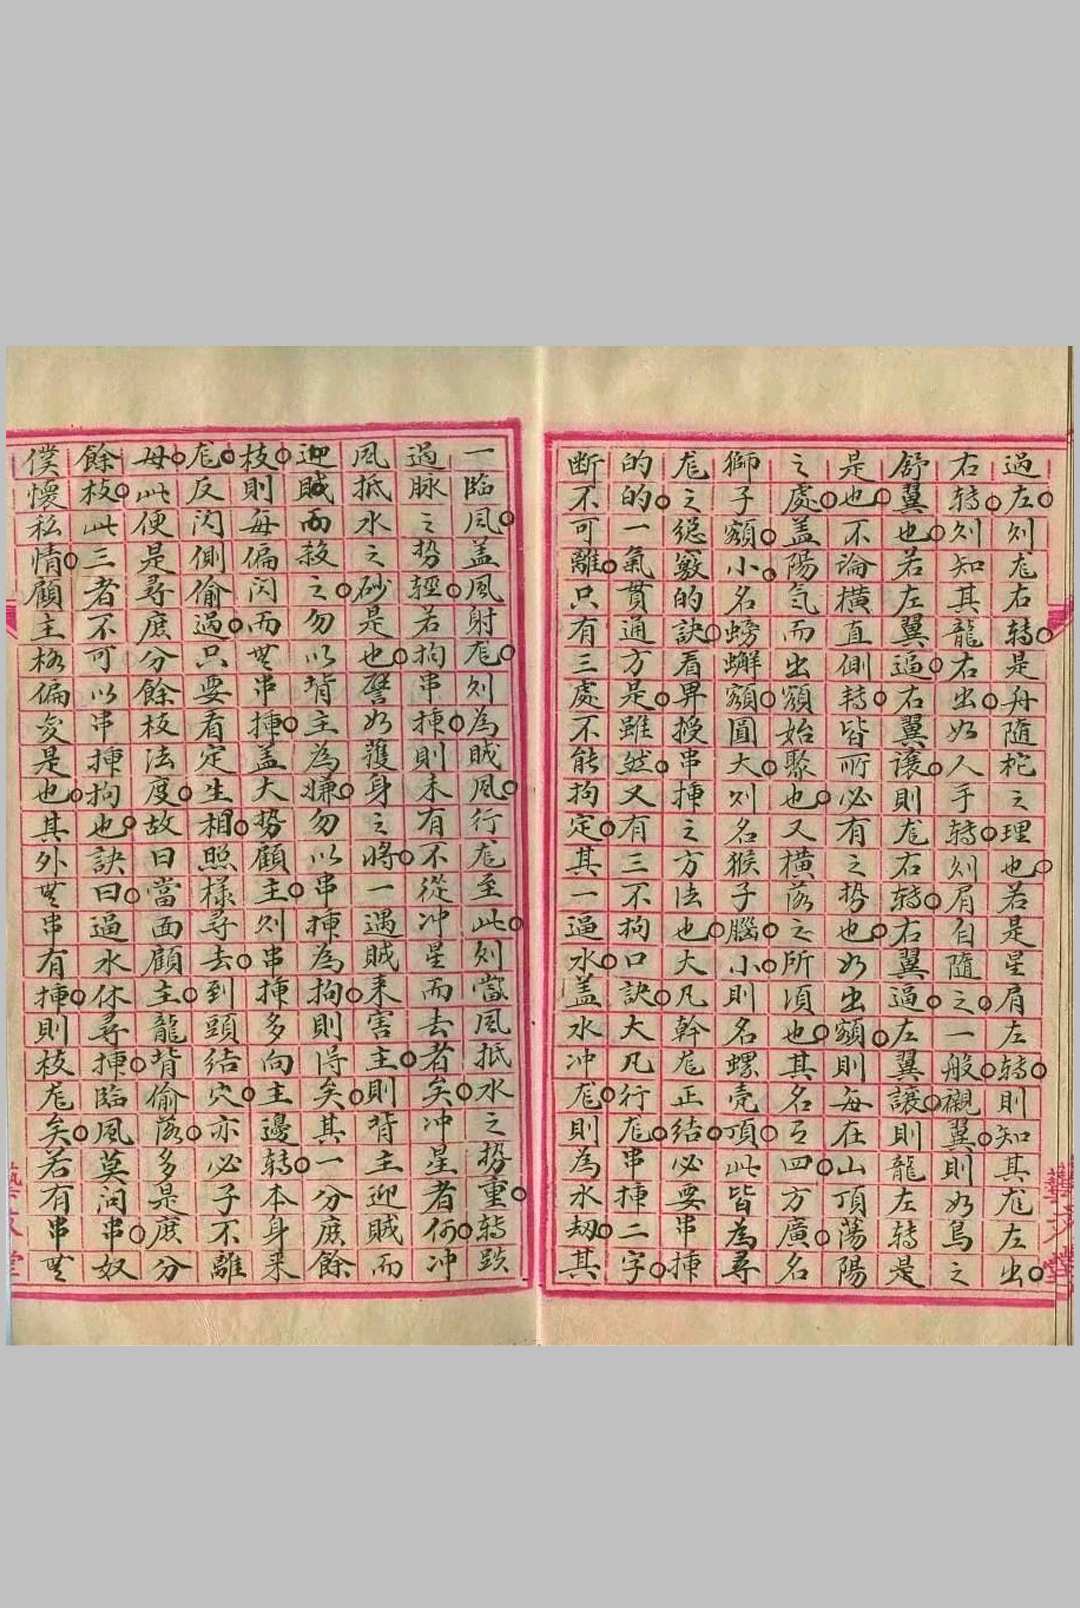 過左○则龙右转○是舟隨柁之理也○若是星肩左转○則知其龙左出○
右转○则知其龍右出○如人手转○则肩自隨之○一般○襯翼○則如鳥之
舒翼也○若左翼逼○右翼讓○則龙右转○右翼逼○左翼讓○則龍左转是
是也○不論橫直側转○皆所必有之勢也○如出額○則每在山頂蕩陽
之處○盖陽气而出額始聚也○又橫落之所須也○其名四○方廣○名
獅子額○小○名螃蠏額○圓大○则名猴子腦○小○則名螺壳頂○此皆為尋
龙之總竅的訣○看畀授串揷之方法也○大凡幹龙正結○必要串揷
的的○一氣貫通方是○雖然○又有三不拘口訣○大凡行龙○串揷二字○
断不可離○只有三處不能拘定○其一逼水○盖水冲龙○則為水劫○其
一臨風○盖風射龙○则為賊風○行龙至此○则當風抵水之勢重○转跌
過脉之勢輕○若拘串揷○則未有不從冲星而去者矣○冲星者何○冲
風抵水之砂是也○譬如護身之將○一遇賊来害主○則背主迎賊而
迎賊而殺之○勿以背主為嫌○勿以串揷為拘○則得矣○其一分庶餘
枝○則每偏闪而無串揷○盖大勢顧主○则串揷多向主邊转○本身来
龙○反闪側偷過○只要看定生相○照樣尋去○到頭結穴○亦必子不離
母○此便是尋庶分餘枝法度○故曰當面顧主○龍背偷落○多是庶分
餘枝○此三者不可以串揷拘也○訣曰○逼水休尋揷○臨風莫问串○奴
僕懷私情○顧主偏是也○其外無串有揷○則枝龙矣○若有串無